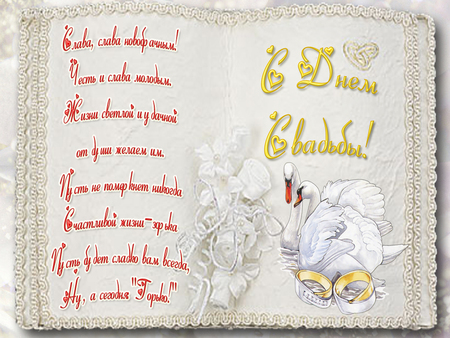 Слава, слава новобрачным!
Честь и слава молодым.
Жизни светлой и удачной
от души желаем им.
Пусть не померкнет никогда
Счастливой жизни-зорька
Пусть будет сладко вам всегда,
Ну, а сегодня "Горько!"
С Днем
Свадьбы!